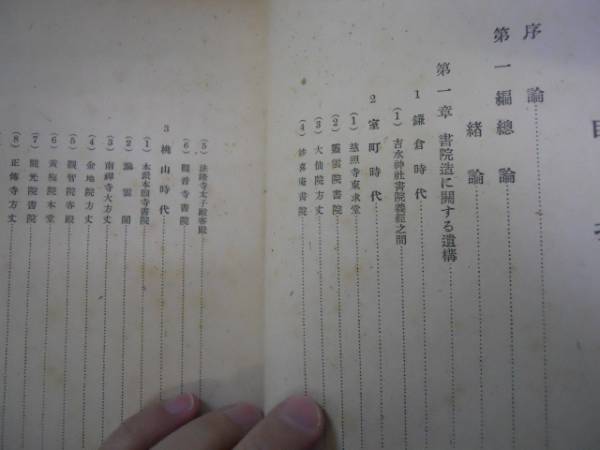 目次
序論
第一編 總論
緒論
第一章 書院造に關する遺構
1 鎌倉時代
(1) 吉水神社書院義經之間
2 室町時代
(1) 慈照寺東求堂
(2) 靈雲院書院
(3) 大仙院方丈
(4) 妙喜庵書院
(5) 法隆寺太子殿客殿
(6) 觀音寺書院
3 桃山時代
(1) 本派本願寺書院
(2) 飛雲閣
(3) 南禪寺大方丈
(4) 金地院方丈
(5) 觀智院客殿
(6) 黄梅院本堂
(7) 觀光院書院
(8) 正傳寺方丈